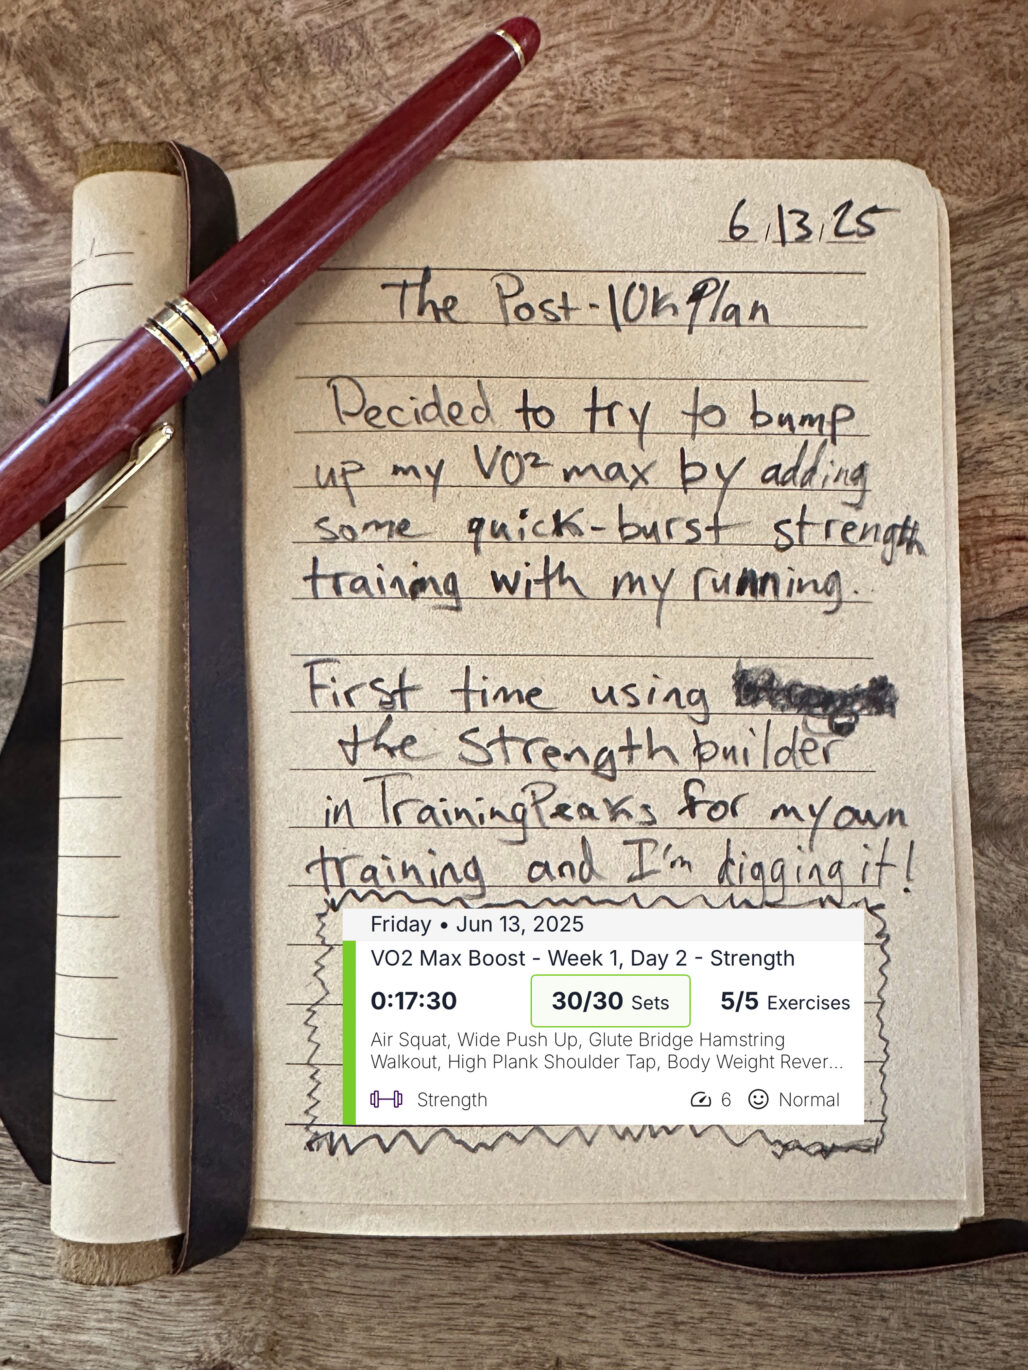 6/13/25
The Post-10K Plan
Decided to try to bump
up my VO² max by adding
some quick-burst strength
training with my running.
First time using
the Strength builder
in TrainingPeaks for my own
training and I'm digging it!
Friday • Jun 13, 2025
VO2 Max Boost - Week 1, Day 2 - Strength
0:17:30 30/30 Sets 5/5 Exercises
Air Squat, Wide Push Up, Glute Bridge Hamstring
Walkout, High Plank Shoulder Tap, Body Weight Rever...
Strength 6 Normal